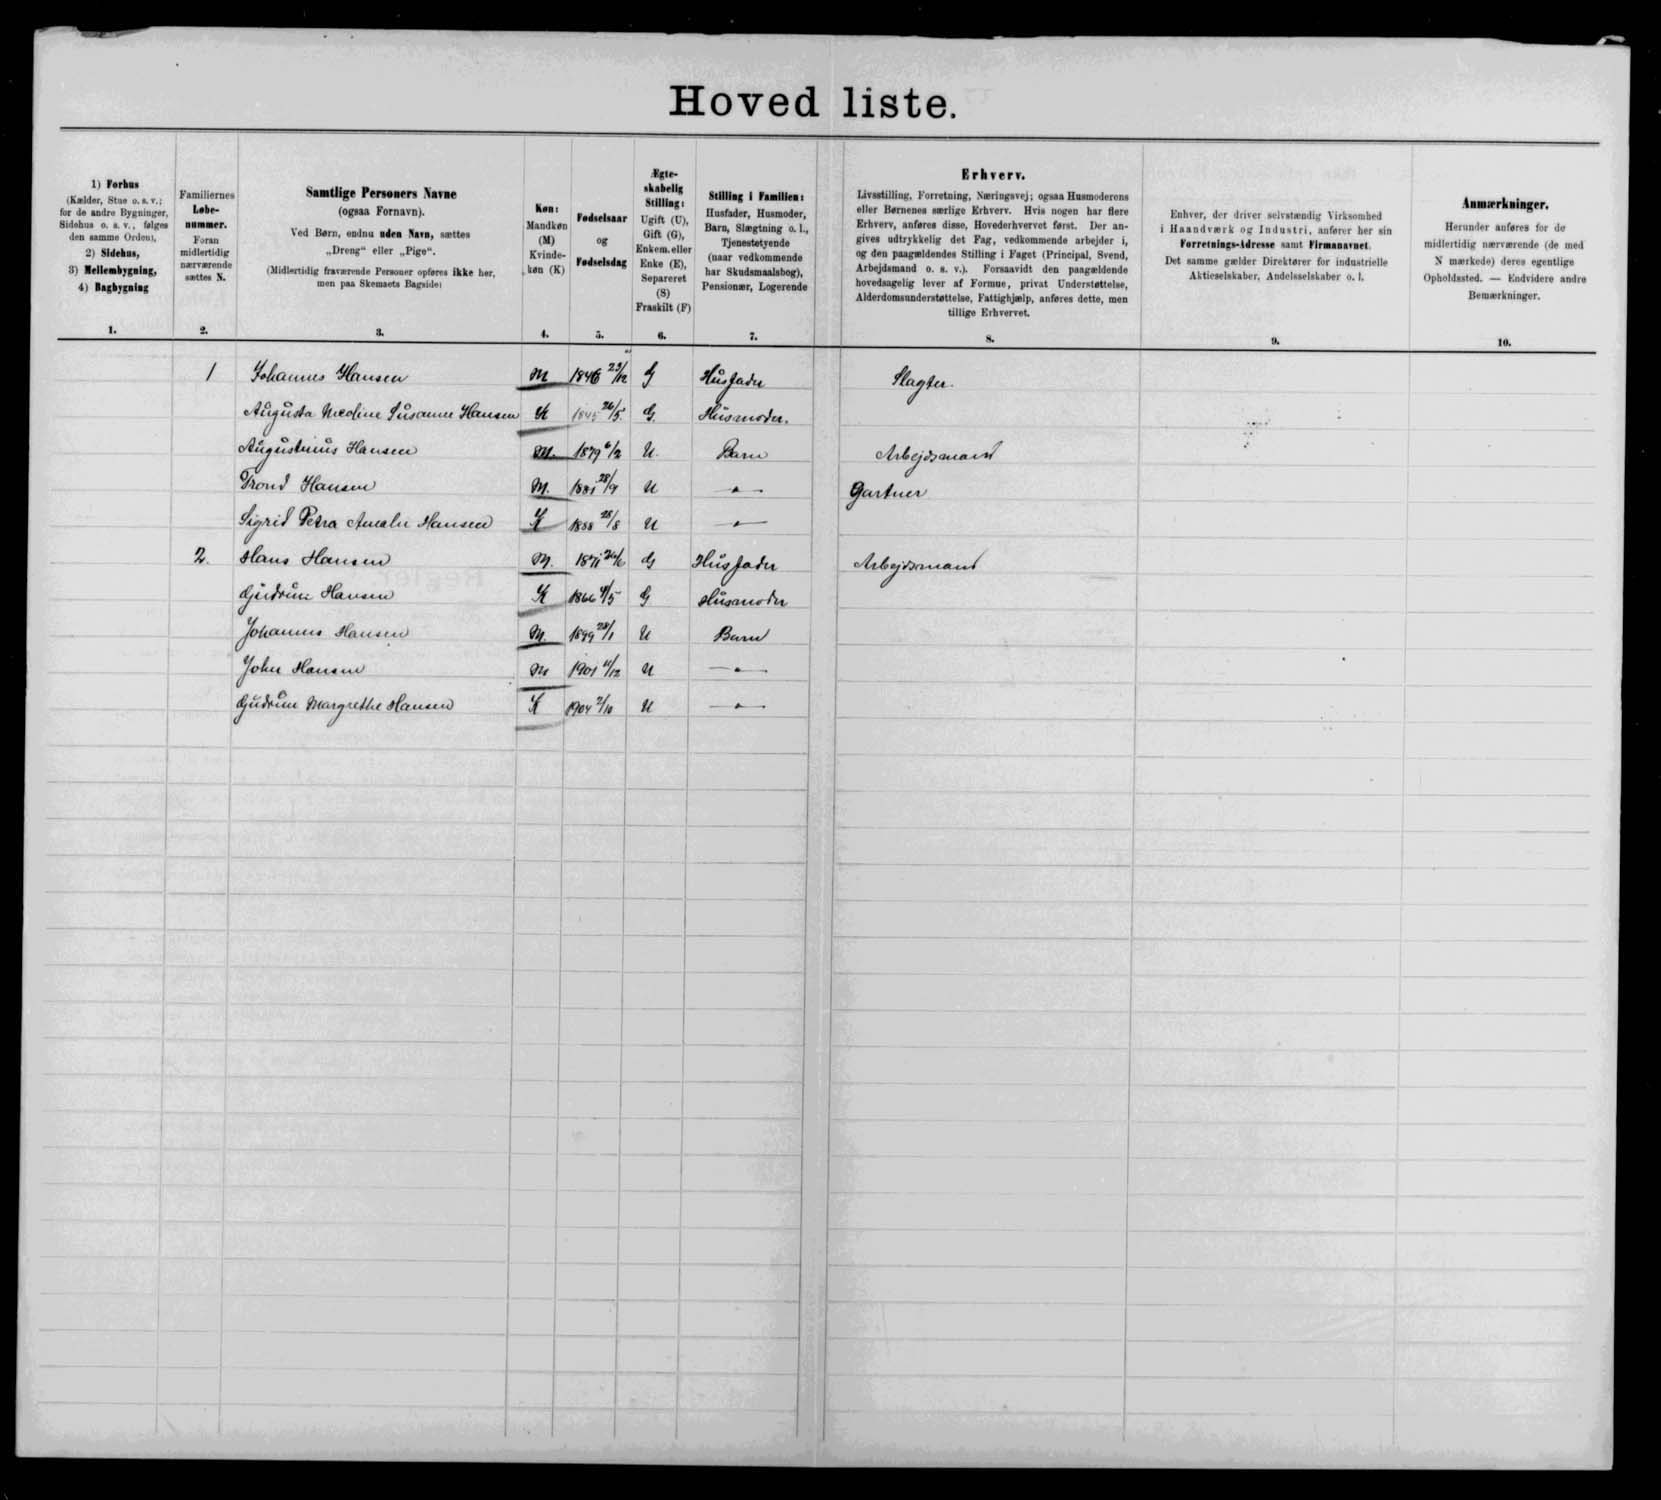 Hoved liste.
1) Forhus
(Kælder, Stue o. s. v.;
for de andre Bygninger,
Sidehus o. s. v., følges
den samme Orden),
2) Sidehus,
3) Mellembygning,
4) Bagbygning
1.
Familiernes
Løbe-
nummer.
Foran
midlertidig
nærværende
sættes N.
2.
Samtlige Personers Navne
(ogsaa Fornavn).
Ved Børn, endnu uden Navn, sættes
„Dreng“ eller „Pige“.
(Midlertidig fraværende Personer opføres ikke her,
men paa Skemaets Bagside)
3.
Køn:
Mandkøn
(M)
Kvinde-
køn (K)
4.
Fødselsaar
og
Fødselsdag
5.
Ægte-
skabelig
Stilling:
Ugift (U),
Gift (G),
Enkem. eller
Enke (E),
Separeret
(S)
Fraskilt (F)
6.
Stilling i Familien:
Husfader, Husmoder,
Barn, Slægtning o. l.,
Tjenestetyende
(naar vedkommende
har Skudsmaalsbog),
Pensionær, Logerende
7.
Erhverv.
Livsstilling, Forretning, Næringsvej; ogsaa Husmoderens
eller Børnenes særlige Erhverv. Hvis nogen har flere
Erhverv, anføres disse, Hovederhvervet først. Der an-
gives udtrykkelig det Fag, vedkommende arbejder i,
og den paagældendes Stilling i Faget (Principal, Svend,
Arbejdsmand o. s. v.). Forsaavidt den paagældende
hovedsagelig lever af Formue, privat Understøttelse,
Alderdomsunderstøttelse, Fattighjælp, anføres dette, men
tillige Erhvervet.
8.
Enhver, der driver selvstændig Virksomhed
i Haandværk og Industri, anfører her sin
Forretnings-Adresse samt Firmanavnet.
Det samme gælder Direktører for industrielle
Aktieselskaber, Andelsselskaber o. l.
9.
Anmærkninger.
Herunder anføres for de
midlertidig nærværende (de med
N mærkede) deres egentlige
Opholdssted. — Endvidere andre
Bemærkninger.
10.
1 Johannes Hansen M 1846 23/12 G Husfader Slagter.
Augusta Nicoline Susanne Hansen K 1845 26/5 G. Husmoder.
Augustinus Hansen M. 1879 6/2 U. Barn Arbejdsmand
Trond Hansen M. 1881 28/9 U — " — Gartner
Sigrid Petra Amalie Hansen K 1888 28/8 U — " —
2. Hans Hansen M. 1871 26/6 G Husfader Arbejdsmand
Gudrun Hansen K 1866 4/5 G Husmoder
Johannes Hansen M. 1899 28/1 U Barn
John Hansen M 1901 11/12 U — " —
Gudrun Margrethe Hansen K 1904 2/10 U — " —